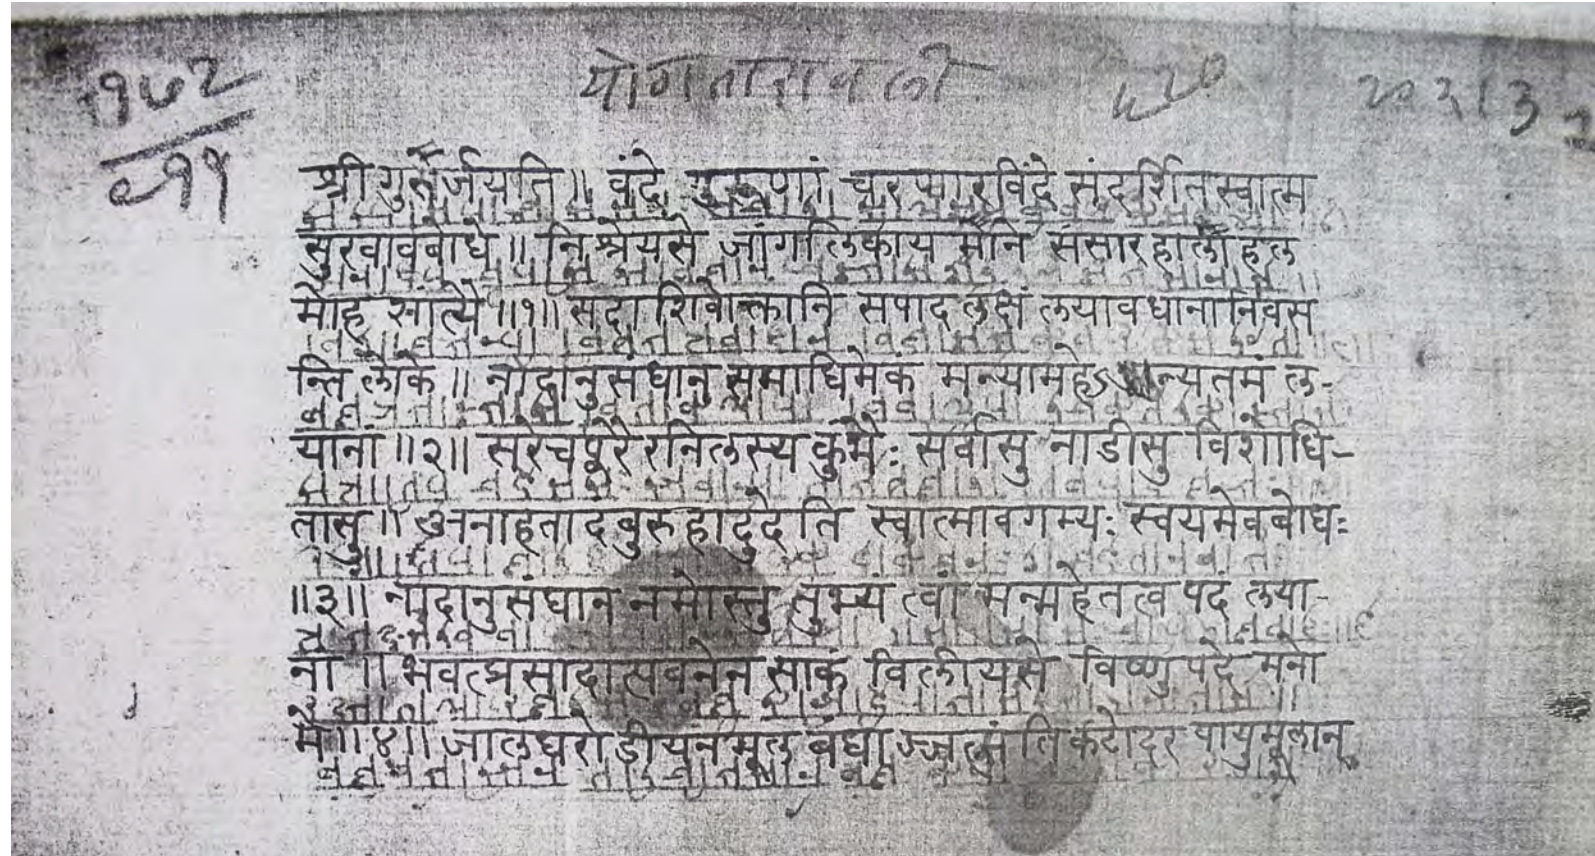 १७२
योगतारावली
५२०
११
श्री गुरुर्जयति ॥ वंदे गुरूणां चरणारविंदे संदर्शितस्वात्म
सुखावबोधे ॥ निश्रेयसे जांगलिकायमाने संसारहालाहल
मोह सात्यै ॥१॥ सदाशिवोक्तानि सपादलक्षं लयावधानानिवस
न्ति लोके ॥ नादानुसंधान समाधिमेकं मन्यामहेऽ न्यतमं ल-
यानां ॥२॥ सरेचपूरैरनिलस्य कुंभैः सर्वासु नाडीसु विशोधि-
तासु ॥ अनाहतादंबुरुहादुदेति स्वात्मावगम्यः स्वयमेवबोधः
॥३॥ नादानुसंधान नमोस्तु तुभ्यं त्वां मन्महेतत्व पदं लया-
नां ॥ भवत्प्रसादात्पवनेन साकं विलीयसे विष्णुपदे मनो
मे ॥४॥ जालंधरोडीयनमूल बंधा कंठोदर पायुमूलान्